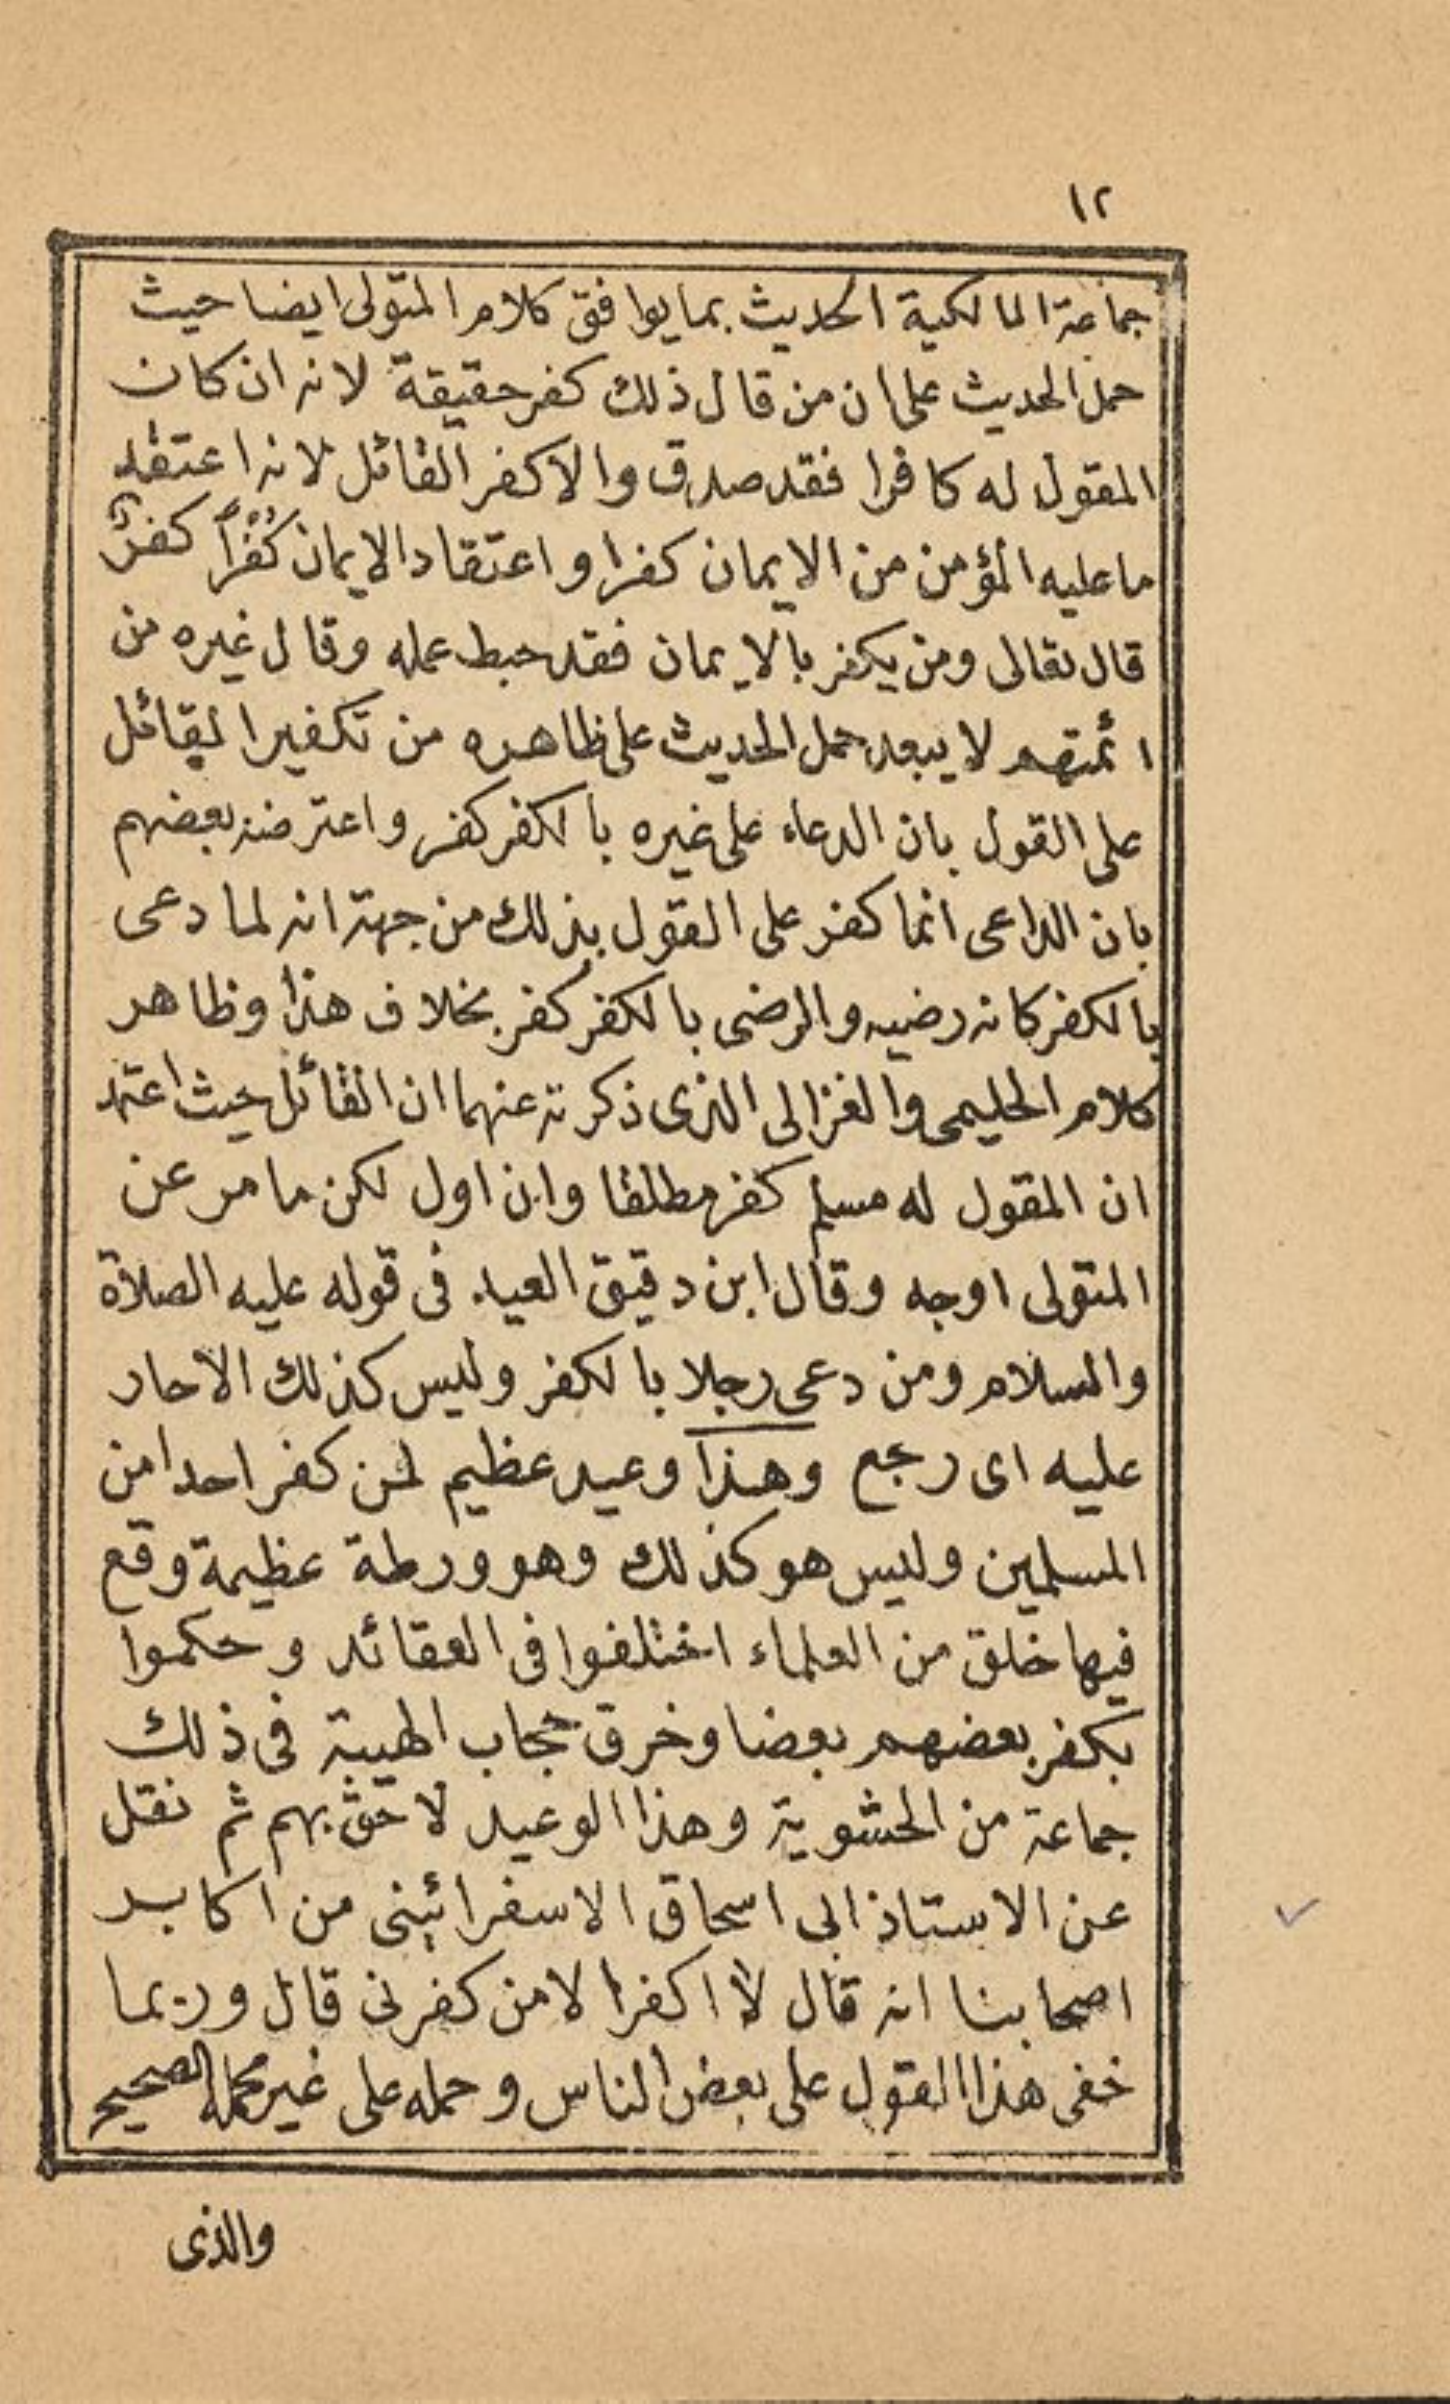 ١٢
جماعة المالكية الحديث بما يوافق كلام المتولى ايضا حيث
حمل الحديث على ان من قال ذلك كفر حقيقة لانه ان كان
المقول له كافرا فقد صدق والا كفر القائل لانه اعتقد
ما عليه المؤمن من الايمان كفرا واعتقاد الايمان كُفْراً كفرٌ
قال تعالى ومن يكفر بالايمان فقد حبط عمله وقال غيره من
ائمتهم لا يبعد حمل الحديث على ظاهره من تكفير القائل
على القول بان الدعاء على غيره بالكفر كفر واعترضه بعضهم
بان الداعى انما كفر على القول بذلك من جهة انه لما دعى
بالكفر كانه رضيه والرضى بالكفر كفر بخلاف هذا وظاهر
كلام الحليمى والغزالى الذى ذكرته عنهما ان القائل حيث اعتقد
ان المقول له مسلم كفر مطلقا وان اول لكن ما مر عن
المتولى اوجه وقال ابن دقيق العيد فى قوله عليه الصلاة
والسلام ومن دعى رجلا بالكفر وليس كذلك الا حار
عليه اى رجع وهذا وعيد عظيم لمن كفر احدا من
المسلمين وليس هو كذلك وهو ورطة عظيمة وقع
فيها خلق من العلماء اختلفوا فى العقائد وحكموا
بكفر بعضهم بعضا وخرق حجاب الهيبة فى ذلك
جماعة من الحشوية وهذا الوعيد لاحق بهم ثم نقل
عن الاستاذ ابى اسحاق الاسفرائينى من اكابر
اصحابنا انه قال لا اكفر الا من كفرنى قال وربما
خفى هذا القول على بعض الناس وحمله على غير محمله الصحيح
والذى